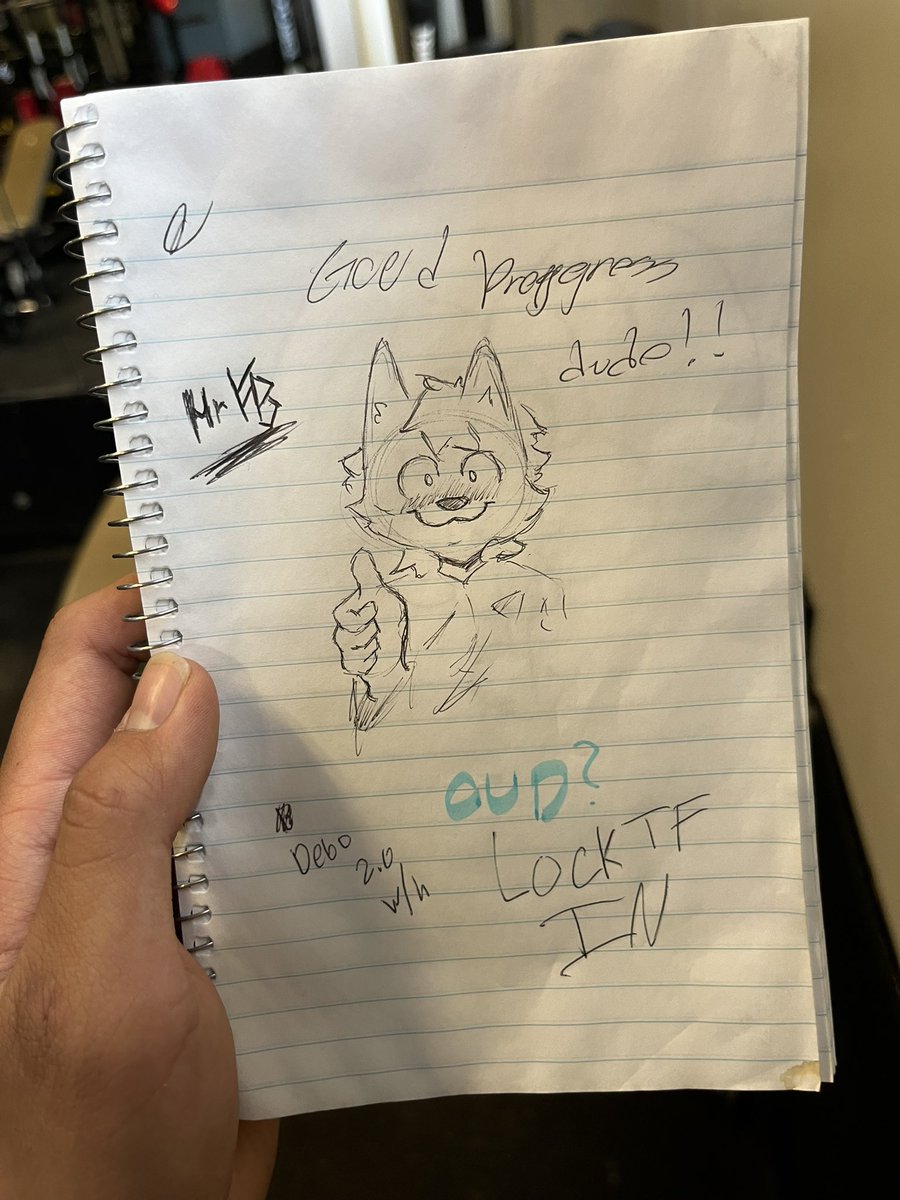 Good Proggress
dude!!
Mr
OUD?
Debo
2.0
w/h
LOCK TF
IN